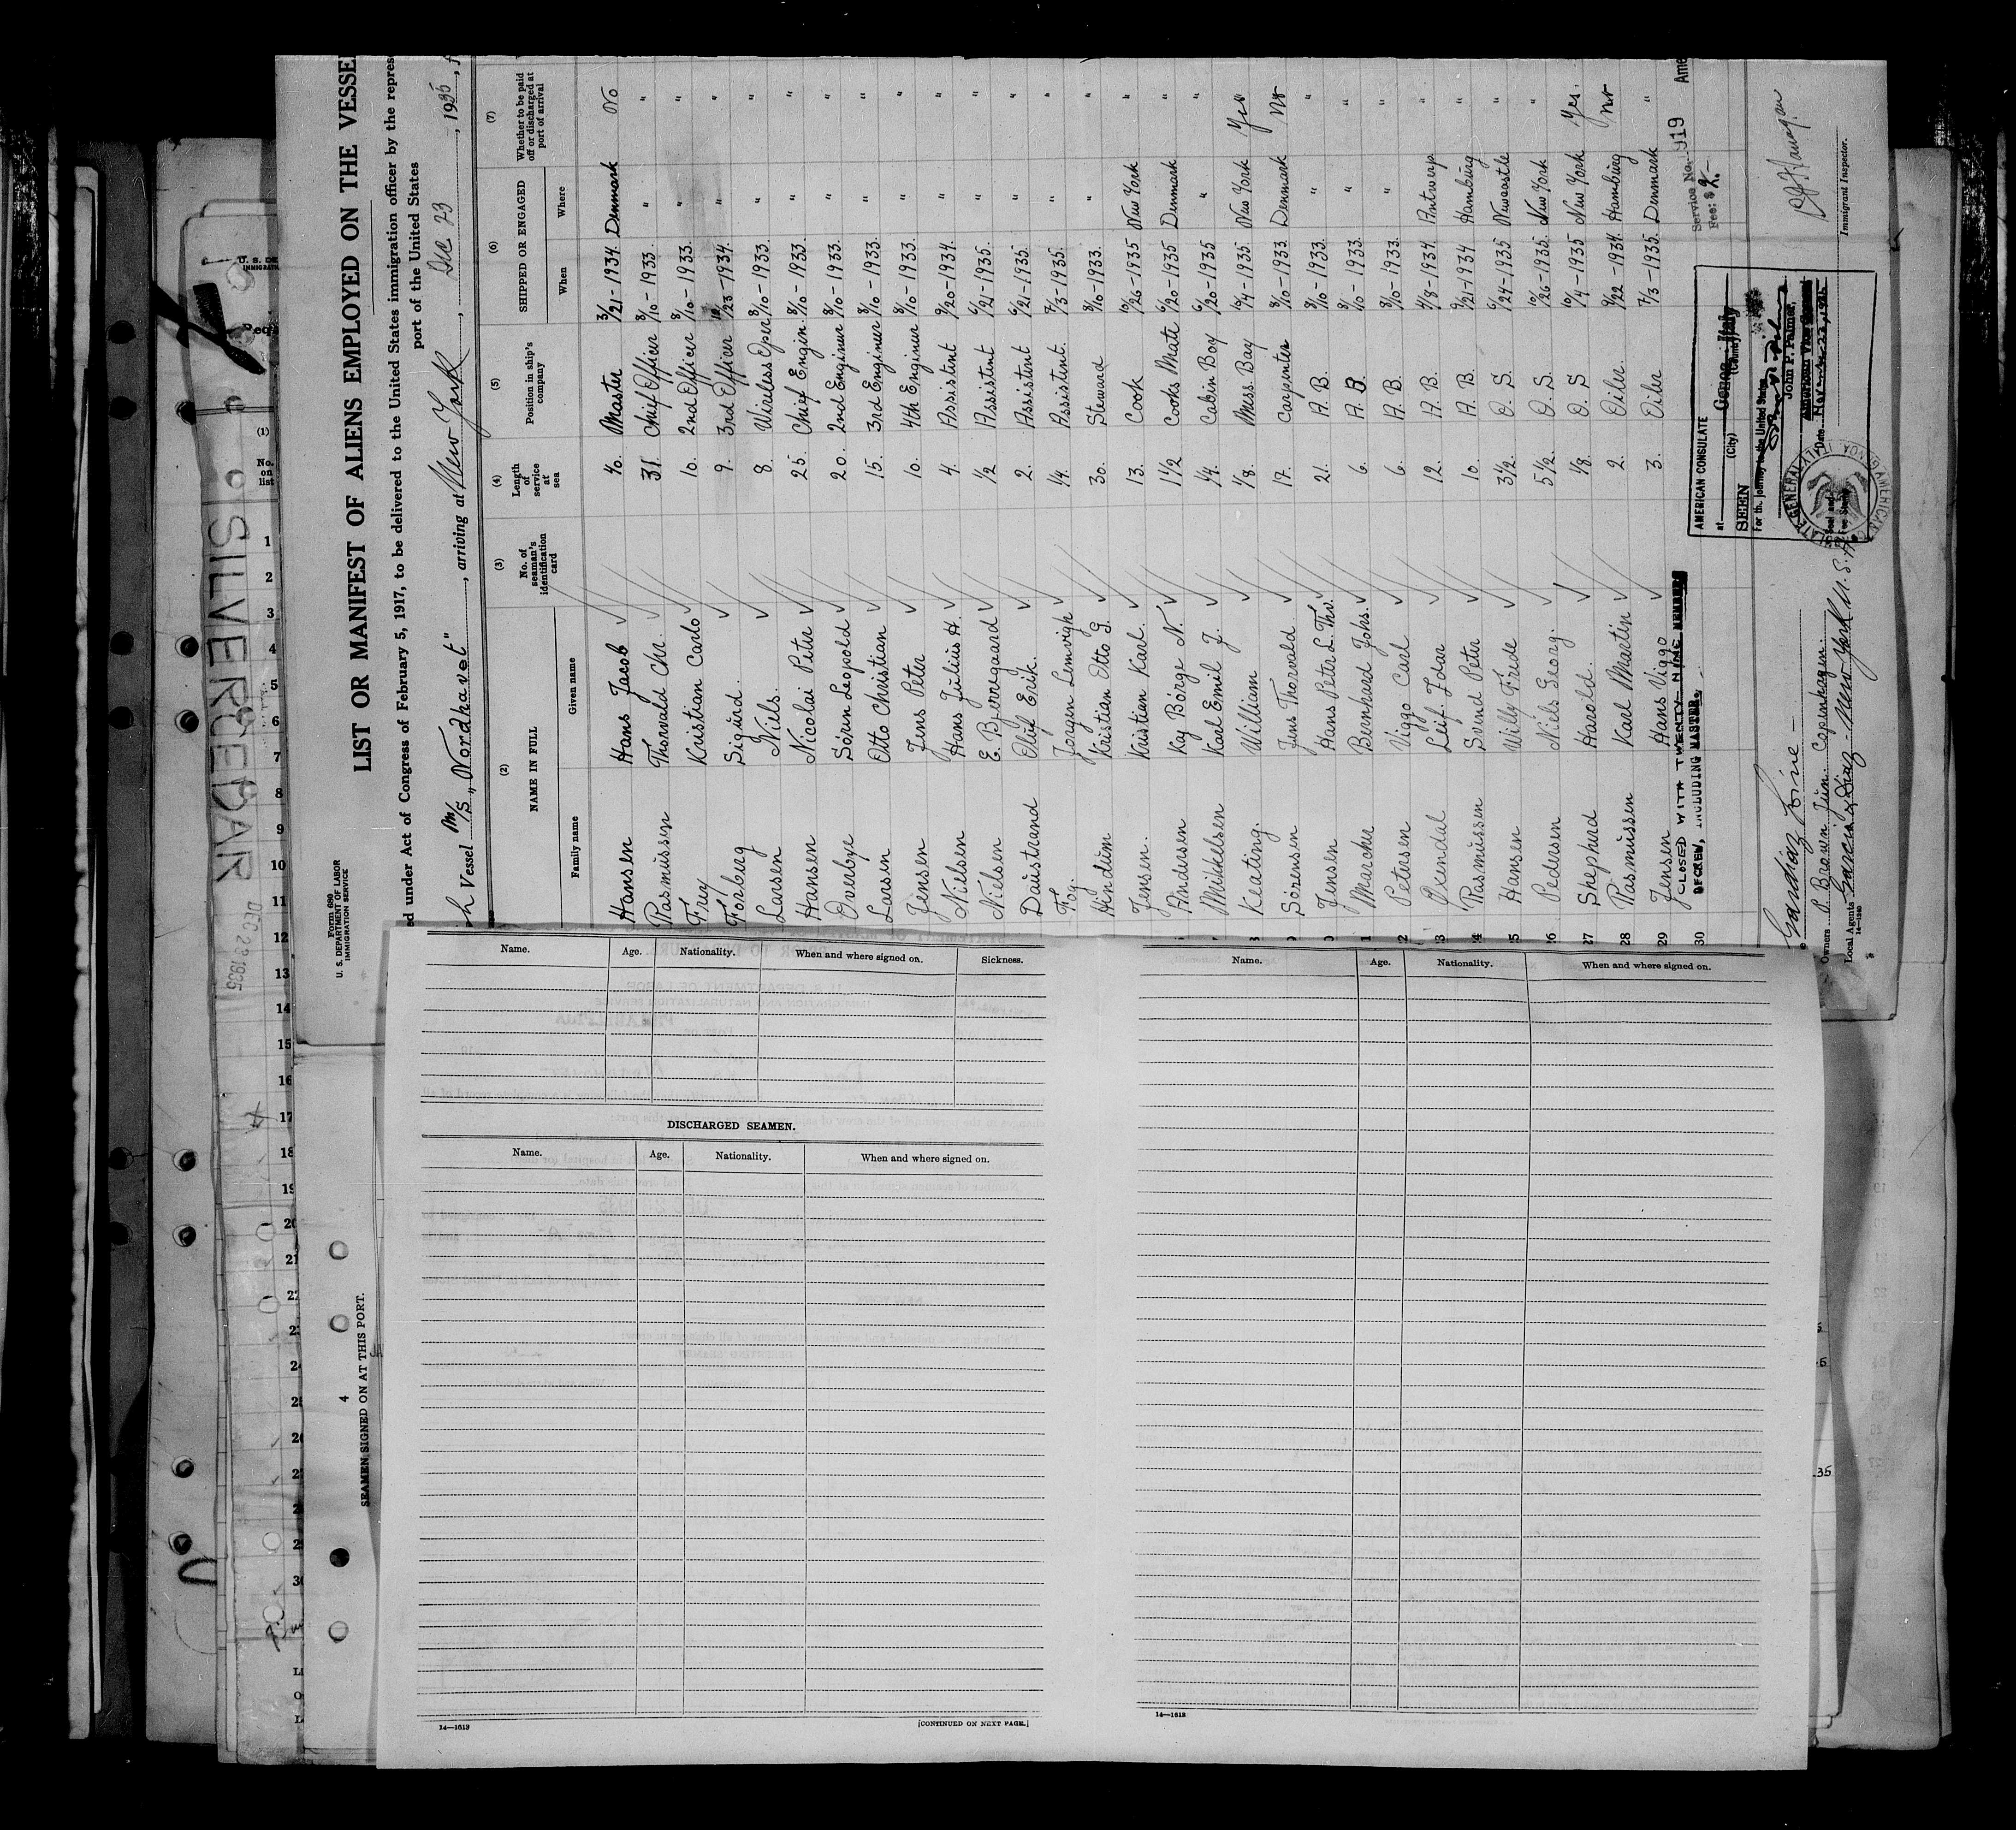 Form 680
U. S. DEPARTMENT OF LABOR
IMMIGRATION SERVICE
LIST OR MANIFEST OF ALIENS EMPLOYED ON THE VESSE
ed under Act of Congress of February 5, 1917, to be delivered to the United States immigration officer by the repres
port of the United States
h Vessel M/S „Nordhavet", arriving at New York, Dec 23, 1935,
(2) (3) (4) (5) (6) (7)
NAME IN FULL
Family name Given name
No. of seaman's identification card
Length of service at sea
Position in ship's company
SHIPPED OR ENGAGED
When Where
Whether to be paid off or discharged at port of arrival
Hansen Hans Jacob 40. Master 3/21-1934. Denmark No
Rasmussen Thorvald Chr. 31. Chief Officer 8/10-1933. " "
Frey Kristian Carlo 10. 2nd Officer 8/10-1933. " "
Forberg Sigurd. 9. 3rd Officer /23-1934. " "
Larsen Niels. 8. Wireless Oper 8/10-1933. " "
Hansen Nicolai Peter 25. Chief Engin. 8/10-1933. " "
Overbye Sören Leopold 20. 2nd Engineer 8/10-1933. " "
Larsen Otto Christian 15. 3rd Engineer 8/10-1933. " "
Jensen Jens Peter 10. 4th Engineer 8/10-1933. " "
Nielsen Hans Julius H. 4. Assistent 9/20-1934. " "
Nielsen E. Bjerregaard 1/2 Assistent 6/21-1935. " "
Daustrand Oluf Erik. 2. Assistent 6/21-1935. " "
Fog. Jorgen Lemvigh 1/4. Assistent. 7/3-1935. " "
Hindum Kristian Otto G. 30. Steward 8/10-1933. " "
Jensen. Kristian Karl. 13. Cook 10/26-1935 New York "
Andersen Kaj Börge N. 1 1/2 Cooks Mate 6/20-1935 Denmark "
Mikkelsen Karl Emil J. 1/4. Cabin Boy 6/20-1935 " "
Keating. William 1/8. Mess Boy 10/4-1935 New York Yes
Sörensen Jens Thorvald. 17. Carpenter 8/10-1933. Denmark No
Jensen Hans Peter L. Thv. 21. A. B. 8/10-1933. " "
Marcher Bernhard Johs. 6. A. B. 8/10-1933. " "
22 Petersen Viggo Carl 6. A. B. 8/10-1933. " "
23 Leif Ivar 12. A. B. 4/8-1934. Antwerp "
24 Rasmussen Svend Peter 10. A. B. 9/21-1934 Hamburg "
25 Hansen Willy Frede 3 1/2. O. S. 6/24-1935 Newcastle "
26 Pedersen Niels Georg. 5 1/2. O. S. 10/26-1935. New York "
27 Shepherd Harold. 1/8. O. S 10/4-1935 New York Yes.
28 Rasmussen Karl Martin 2. Oiler. 9/22-1934. Hamburg No
29 Jensen Hans Viggo 3. Oiler 7/3-1935. Denmark "
30 CLOSED WITH TWENTY-NINE MEMBERS
OF CREW, INCLUDING MASTER.
Service No. 919
Fee: $2.-
AMERICAN CONSULATE
at Genoa, Italy
(City) (Country)
SEEN
For the journey to the United States
John P. Palmer,
American Vice
Date
Immigrant Inspector.
Owners P. Brown Jun. Copenhagen.
Local Agents Garcia & Diaz - New York U. S. A.
14—1240
SILVERCEDAR
DEC 22 1935
U. S. DE
IMMIGRATI
(1)
No. on list
1
2
3
4
5
6
7
8
9
10
11
12
13
14
15
16
17
18
19
20
21
4
SEAMEN SIGNED ON AT THIS PORT.
Name. Age. Nationality. When and where signed on. Sickness.
DISCHARGED SEAMEN.
Name. Age. Nationality. When and where signed on.
14—1613
[CONTINUED ON NEXT PAGE.]
Name. Age. Nationality. When and where signed on.
14—1613